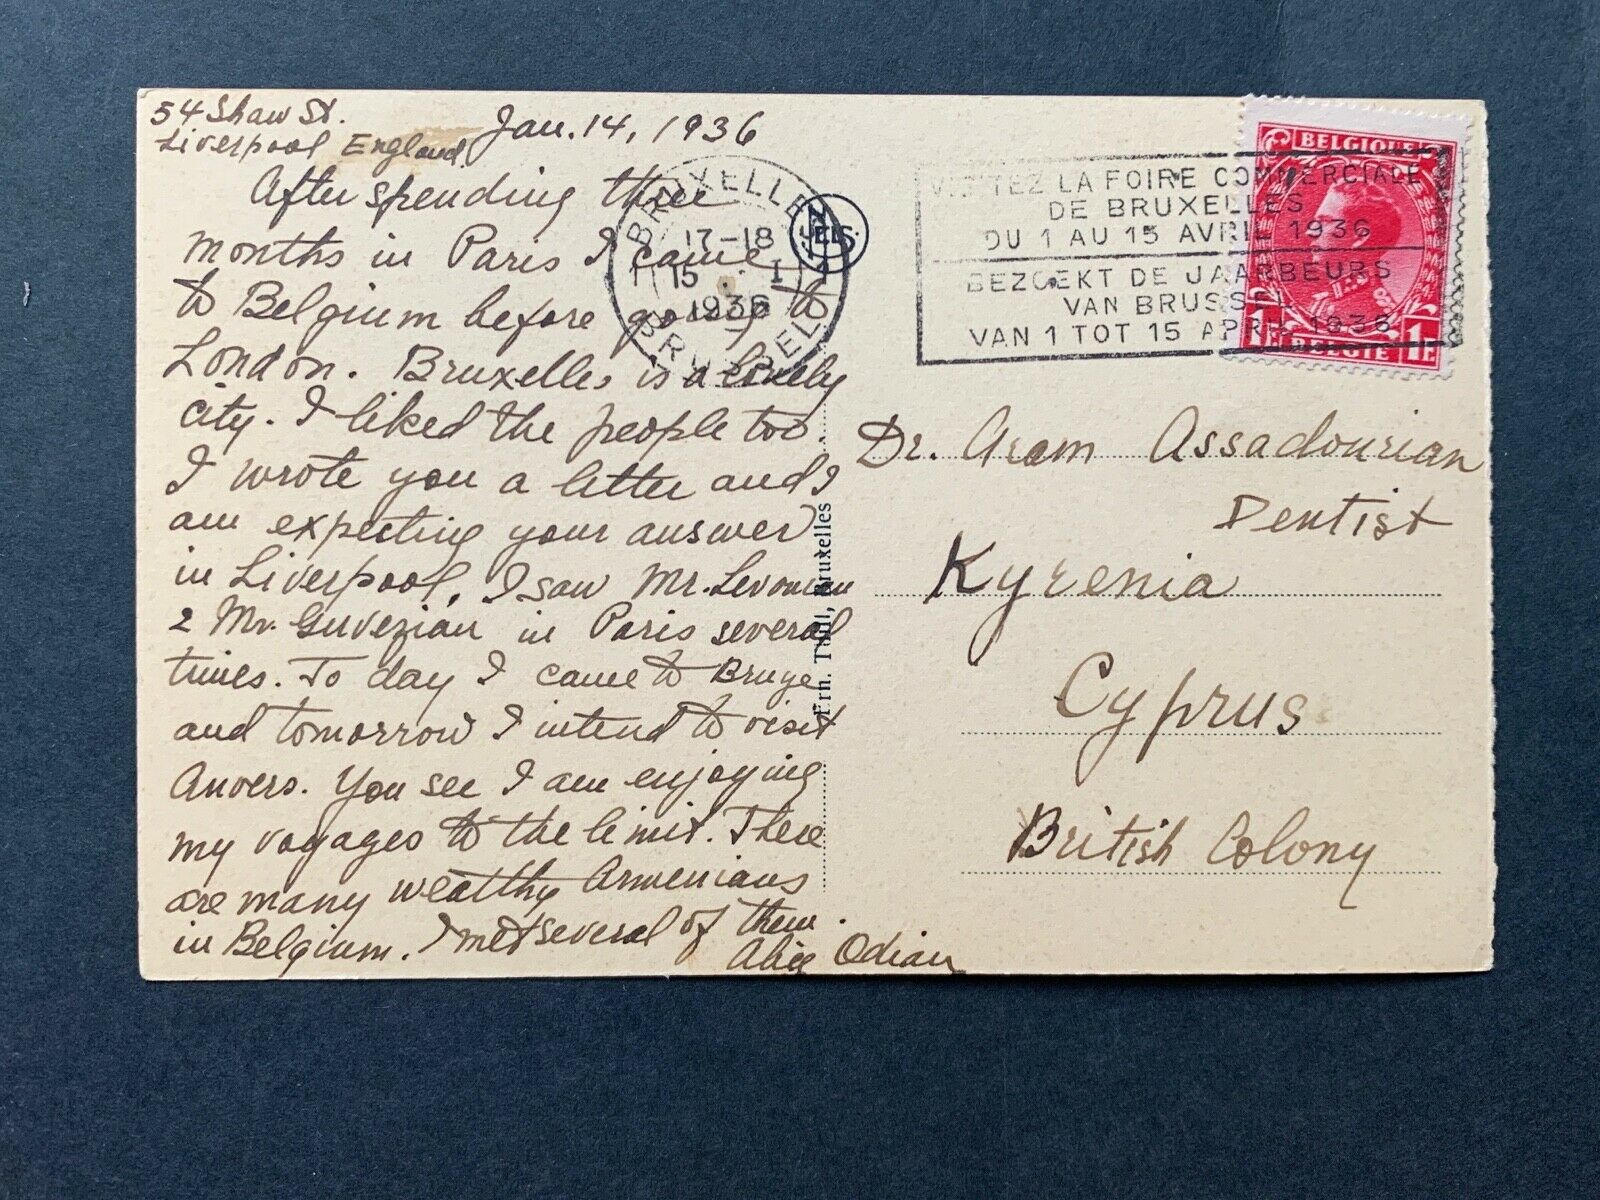 54 Shaw St.
Liverpool England
Jan. 14, 1936
After spending three
months in Paris I came
to Belgium before going to
London. Bruxelles is a lovely
city. I liked the people too.
I wrote you a letter and I
am expecting your answer
in Liverpool. I saw Mr. Levonian
& Mr. Guvezian in Paris several
times. To day I came to Bruge
and tomorrow I intend to visit
Anvers. You see I am enjoying
my voyages to the limit. There
are many wealthy Armenians
in Belgium. I met several of them.
Alice Odian
Ern. Thill, Bruxelles
BRUXELLES
17-18
15 I
1936
BRUSSEL
VISITEZ LA FOIRE COMMERCIALE
DE BRUXELLES
DU 1 AU 15 AVRIL 1936
BEZOEKT DE JAARBEURS
VAN BRUSSEL
VAN 1 TOT 15 APRIL 1936
BELGIQUE
1F BELGIË 1F
Dr. Aram Assadourian
Dentist
Kyrenia
Cyprus
British Colony